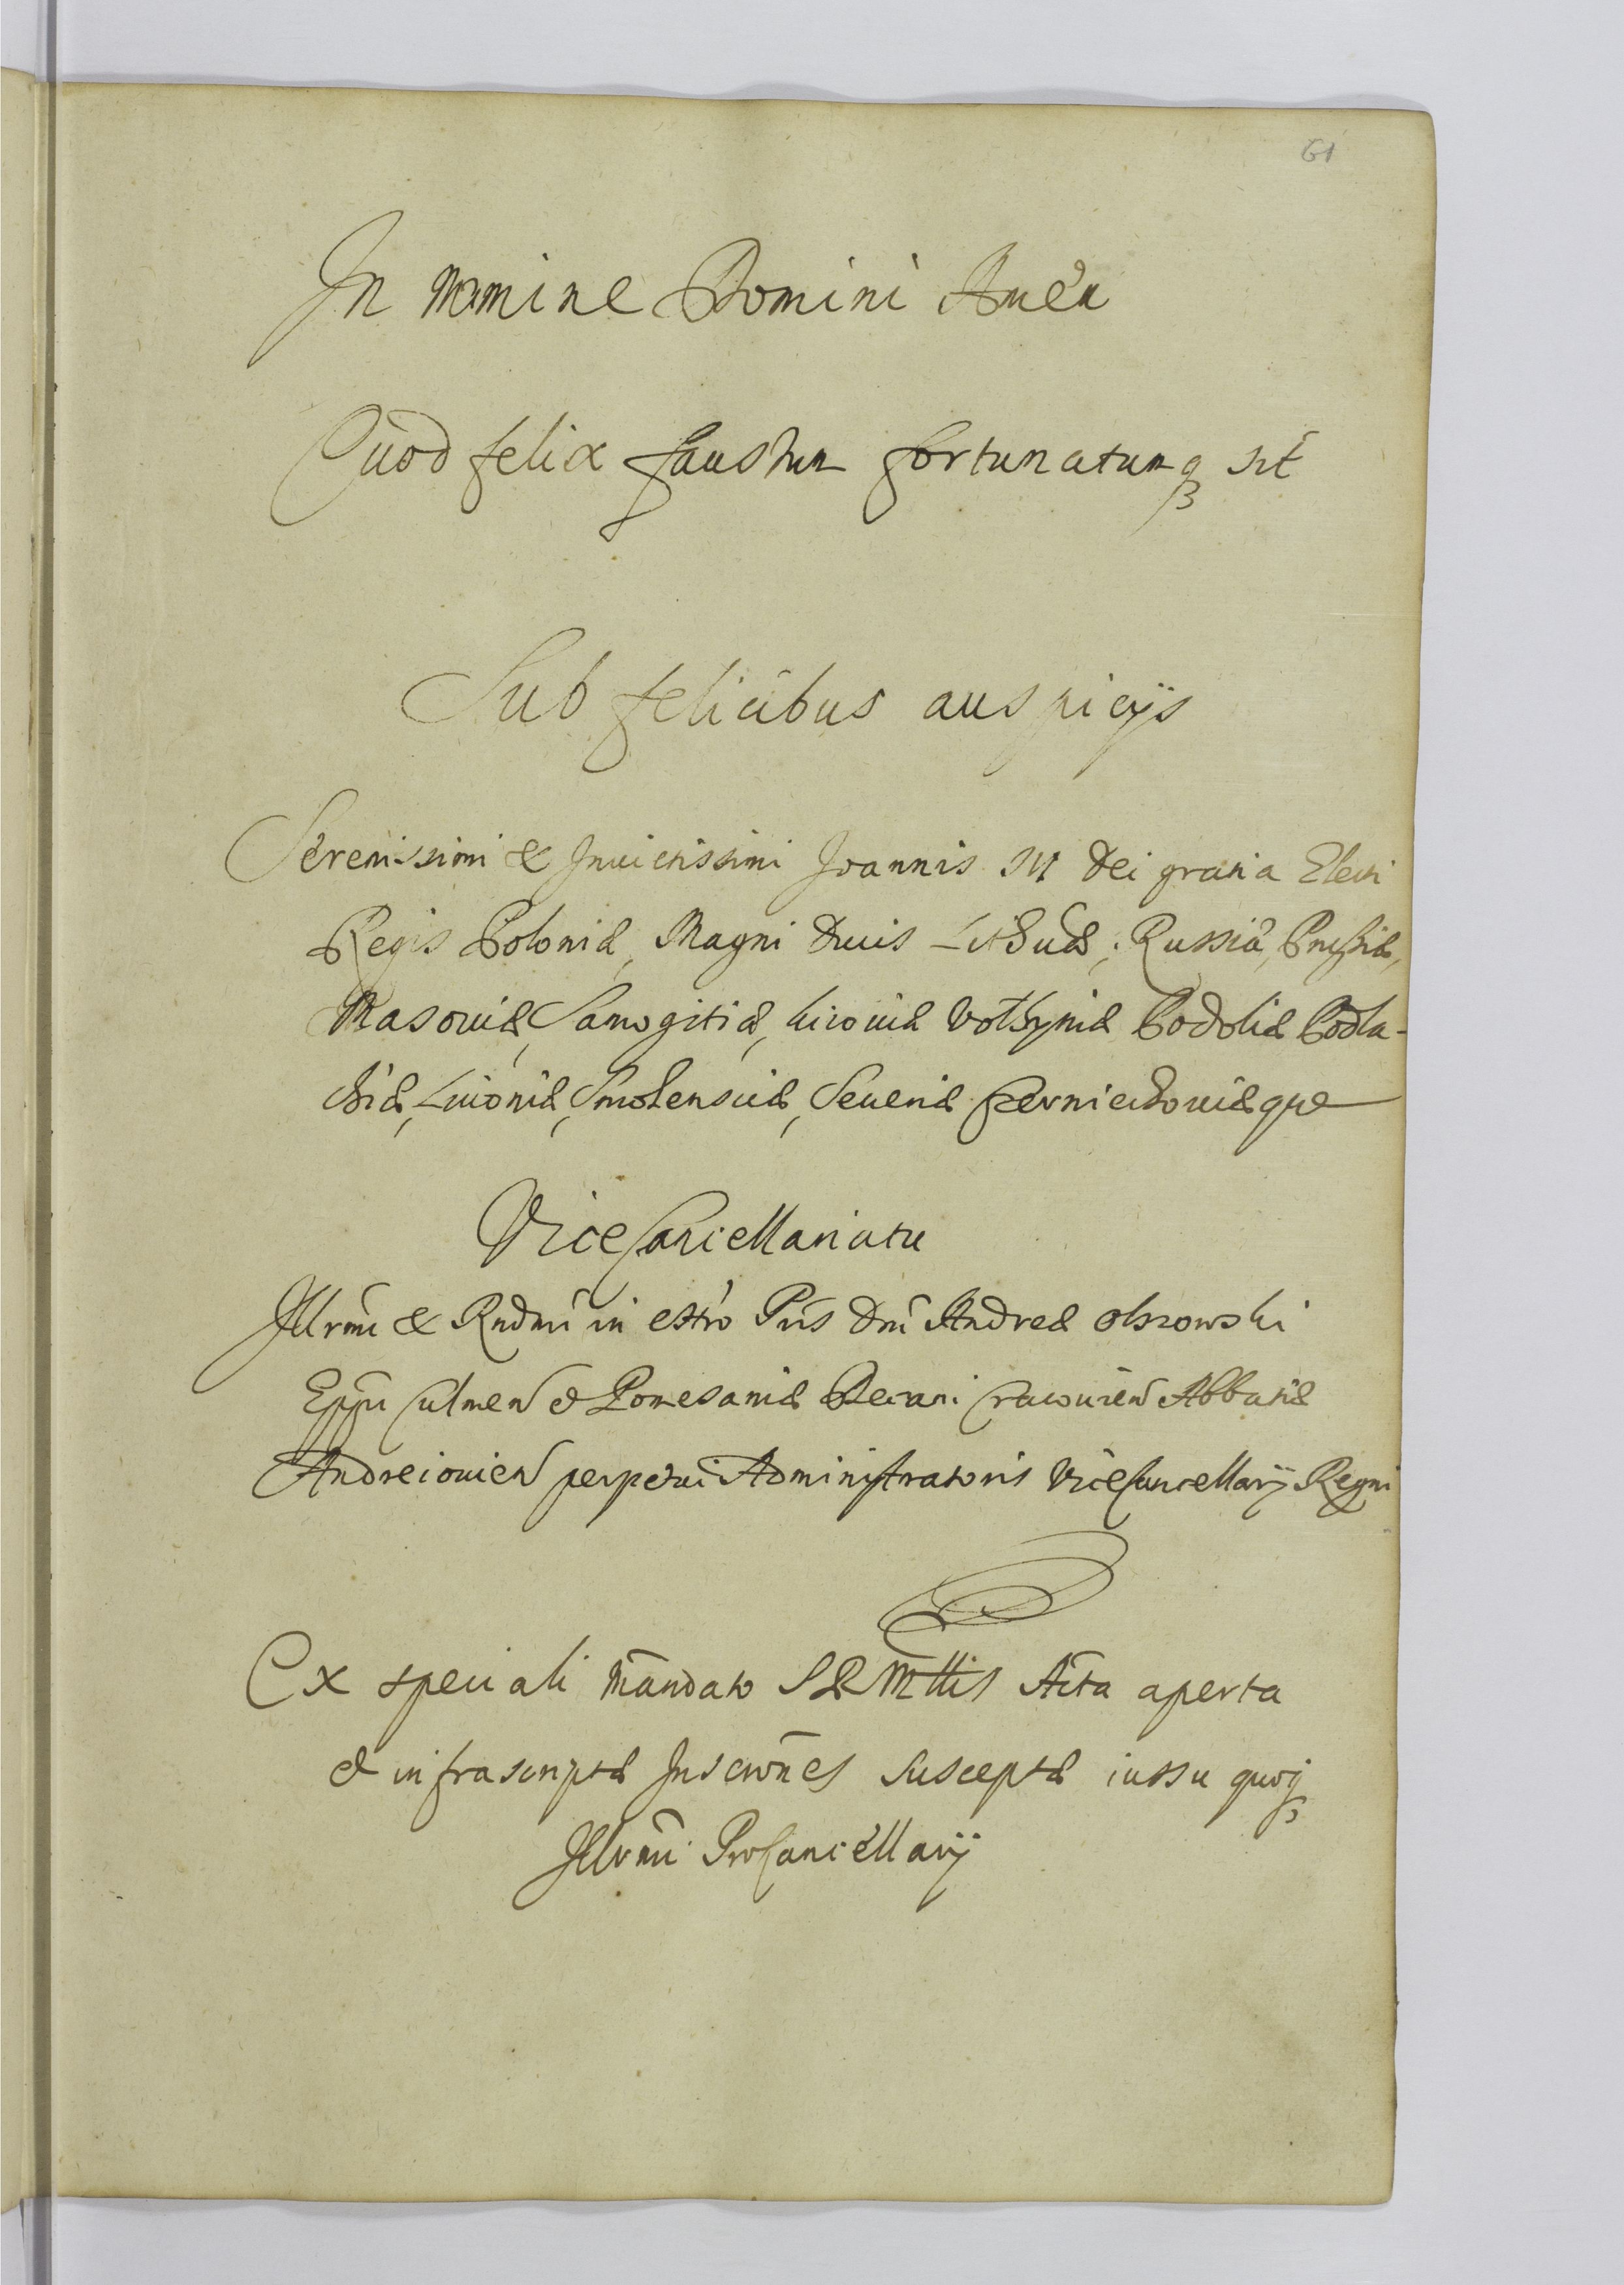 61
In Nomine Domini Amen
Quod felix faustum fortunatumq3 sit
Sub felicibus auspicijs
Serenissimi & Inuictissimi Joannis III Dei gratia Electi
Regis Poloniæ, Magni Ducis Lithuæ, Russiæ, Prussiæ,
Masouiæ, Samogitiæ, Kiiouiæ Volhyniæ Podoliæ Podla-
chiæ, Liuoniæ, Smolensciæ, Seueriæ Czerniechouiæque
ViceCancellariatu
Illrmi & Rndmi in Chro Pris Dni Andreæ Olszowski
Eppi Culmen et Pomesaniæ Decani Cracouien Abbatiæ
Andreiouien perpetui Administratoris ViceCancellarij Regni
Ex speciali mandato S R Mttis Acta aperta
et infrascriptæ Inscrones susceptæ iussu quoq3
Illrmi ProCancellarij